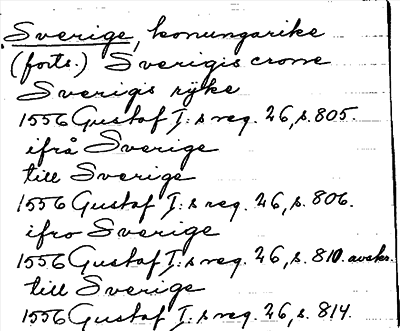 Sverige, konungarike
(forts.) Sverigis crone
Sverigis rijke
1556 Gustaf I:s reg. 26, s. 805.
ifrå Sverige
till Sverige
1556 Gustaf I:s reg. 26, s. 806.
ifro Sverige
1556 Gustaf I:s reg. 26, s. 810. avskr.
till Sverige
1556 Gustaf I:s reg. 26, s. 814.